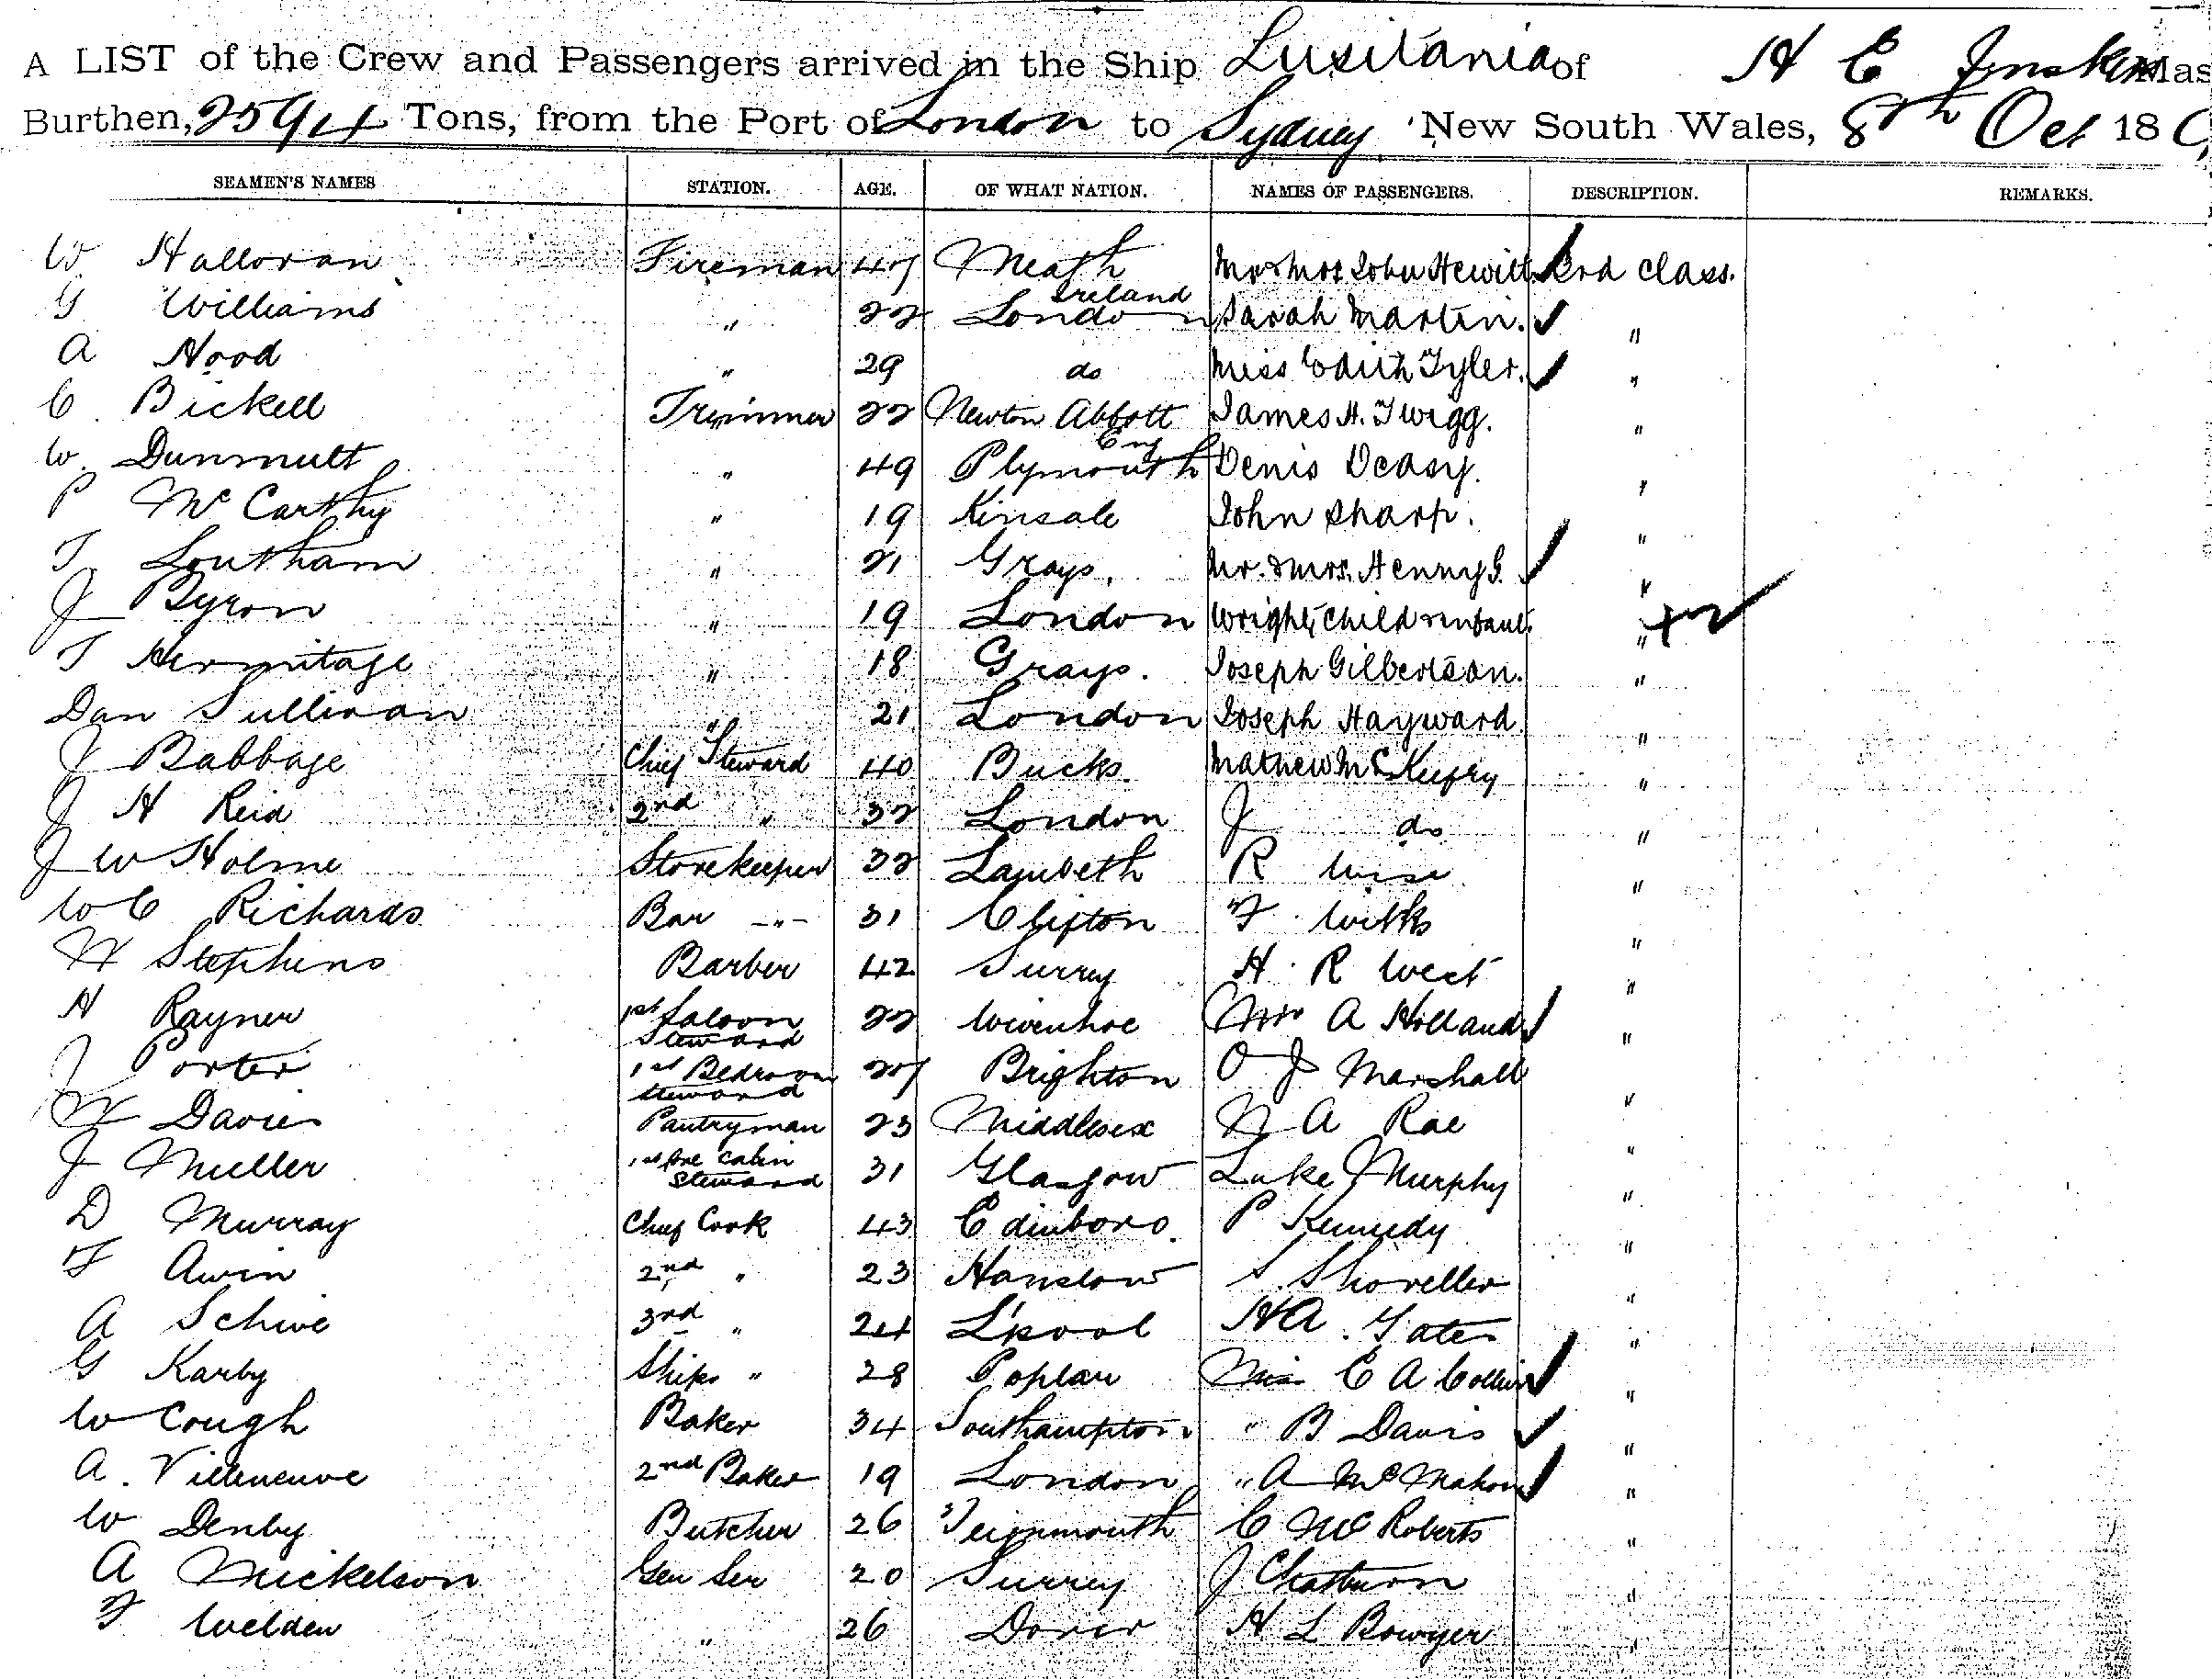 A LIST of the Crew and Passengers arrived in the Ship Lusitania of H E Mas
Burthen, 2594 Tons, from the Port of London to Sydney, New South Wales, 8th Oct 18
SEAMEN'S NAMES STATION. AGE. OF WHAT NATION. NAMES OF PASSENGERS. DESCRIPTION. REMARKS.
W Halloran Fireman 47 Meath Mr & Mrs John Hewitt 3rd Class.
Ireland
G Williams " 22 London Sarah Martin. "
A Hood " 29 do Miss Edith Tyler. "
C Bickell Trimmer 22 Newton Abbott James H. Twigg. "
Eng
W. Dunmult " 49 Plymouth Denis Deasy. "
P McCarthy " 19 Kinsale John Sharp. "
T. Loutham " 21 Grays. Mr. & Mrs. Henry G. "
J Byron " 19 London Wright, Child & infant. " + 2
T Hermitage " 18 Grays. Joseph Gilbertson. "
Dan Sullivan " 21 London Joseph Hayward. "
J Babbage Chief Steward 40 Bucks. Mathew "
J H Reid 2nd " 32 London J do "
J W Holme Storekeeper 32 Lambeth R Wise "
W C Richards Bar -"- 31 Clifton F Wilks "
W Stephens Barber 42 Surrey H. R West "
H Rayner 1st Saloon Steward 22 Wivenhoe Mrs A Holland "
J Porter 1st Bedroom Steward 27 Brighton O J Marshall "
W Davies Pantryman 23 Middlesex N A Rae "
J Muller 1st Cabin Steward 31 Glasgow Luke Murphy "
D Murray Chief Cook 43 Edinboro. P Kennedy "
F Awin 2nd " 23 Hanslow S Shoveller "
A Schive 3rd " 24 L'pool H A. Yates "
G Karby Ships " 28 Poplar Miss C A Collins "
W Cough Baker 34 Southampton " B Davis "
A. Villeneuve 2nd Baker 19 London " A McMahon "
W Denby Butcher 26 Teignmouth C McRoberts "
A Mickelson Gen Ser 20 Surrey J Chatburn "
F Welden " 26 Dover H L Bowyer "